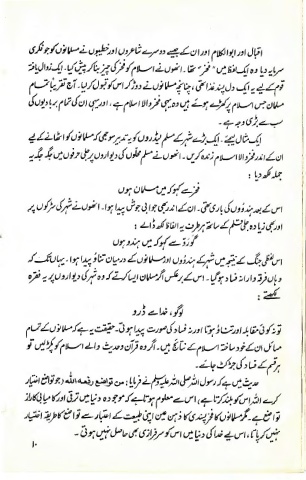 اقبال اور ابوالکلام اور ان کے جیسے دوسرے شاعروں اور خطیبوں نے مسلمانوں کو جو فکری
سرمایہ دیا وہ ایک لفظ میں "فخر" تھا۔ انھوں نے اسلام کو فخر کی چیز بنا کر پیش کیا۔ ایک زوال یافتہ
قوم کے لیے یہ ایک دل پسند غذا تھی، چنانچہ مسلمانوں نے دوڑ کر اس کو قبول کر لیا۔ آج تقریباً تمام
مسلمان جس اسلام پر کھڑے ہوئے ہیں وہ یہی فخر والا اسلام ہے، اور یہی ان کی تمام بربادیوں کی
سب سے بڑی وجہ ہے۔
ایک مثال لیجئے۔ ایک بڑے شہر کے مسلم لیڈروں کو یہ تدبیر سوجھی کہ مسلمانوں کو اٹھانے کے لیے
ان کے اندر فخر والا اسلام زندہ کریں۔ انھوں نے مسلم محلوں کی دیواروں پر جلی حرفوں میں جگہ جگہ یہ
جملہ لکھ دیا:
فخر سے کہو کہ میں مسلمان ہوں
اس کے بعد ہندوؤں کی باری تھی۔ ان کے اندر بھی جوابی جوش پیدا ہوا۔ انھوں نے شہر کی سڑکوں پر
اور بھی زیادہ جلی قلم سے ہر طرف یہ الفاظ لکھ ڈالے:
گورو سے کہو کہ میں ہندو ہوں
اس لفظی جنگ کے نتیجہ میں شہر کے ہندوؤں اور مسلمانوں کے درمیان تناؤ پیدا ہوا۔ یہاں تک کہ
وہاں فرقہ وارانہ فساد ہو گیا۔ اس کے برعکس اگر مسلمان ایسا کرتے کہ وہ شہر کی دیواروں پر یہ فقرہ
لکھتے:
لوگو، خدا سے ڈرو
تو نہ کوئی مقابلہ اور تناؤ ہوتا اور نہ فساد کی صورت پیدا ہوتی۔ حقیقت یہ ہے کہ مسلمانوں کے تمام
مسائل ان کے خود ساختہ اسلام کے نتائج ہیں۔ اگر وہ قرآن و حدیث والے اسلام کو پکڑ لیں تو
ہر قسم کے فساد کی جڑ کٹ جائے۔
حدیث میں ہے کہ رسول اللہ صلی اللہ علیہ وسلم نے فرمایا: من تواضع رفعه الله (جو تواضع اختیار
کرے اللہ اس کو بلند کرتا ہے)۔ اس سے معلوم ہوتا ہے کہ موجودہ دنیا میں ترقی اور کامیابی کا راز
تواضع ہے۔ مگر مسلمانوں کا فخر پسندی کا ذہن عین اپنی طبیعت کے اعتبار سے تواضع کا طریقہ اختیار
نہیں کر پاتا، اس لیے خدا کی دنیا میں اس کو سرفرازی بھی حاصل نہیں ہوتی۔
۱۰